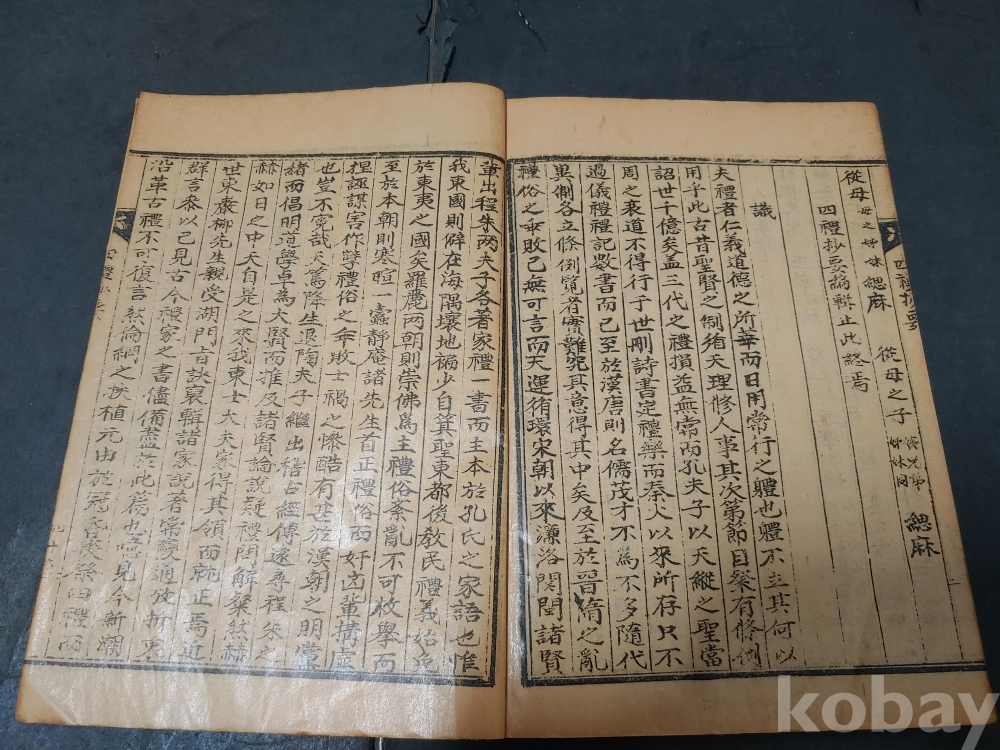 從母 母之姊妹 緦麻 從母之子 姊妹同 緦麻
四禮抄要編輯止此終焉
識
夫禮者仁義道德之所華而日用常行之軆也軆不立其何以
用乎此古昔聖賢之制循天理修人事其次第節目粲有條例
詔世千億矣盖三代之禮損益無常而孔夫子以天縱之聖當
周之衰道不得行于世刪詩書定禮樂而秦火以來所存只不
過儀禮禮記數書而已至於漢唐則名儒茂才不爲不多隨代
異制各立條例覽者實難究其意得其中矣及至於晉隋之亂
禮俗之乖敗已無可言而天運循環宋朝以來濂洛関閩諸賢
輩出程朱兩夫子各著家禮一書而主本於孔氏之家語也惟
我東國則僻在海隅壤地褊少自箕聖東都後敎民禮義始免
於東夷之國矣羅麗兩朝則崇佛爲主禮俗紊亂不可收擧而
至於本朝則寒暄一蠹靜庵諸先生首正禮俗而奸凶輩搆虛
捏誣謀害作孼禮俗之乖敗士禍之慘酷有甚於漢朝之明黨
也豈不寃哉天爲降生退陶夫子繼出稽古經傳遠尋程朱之
緖而倡明道學卓爲大賢而推及諸賢論說疑禮問解粲然赫
赫如日之中天自是之來我東士大夫家得其領而統正焉近
世東齋柳先生親受湖門旨訣裒輯諸家說著常變通攷折衷
群言叅以己見古今禮家之書儘備盡於此篇也噫見今新潮
沿革古禮不可復言然論綱之扶植元由於冠昏喪祭四禮而
四禮抄要
kobay